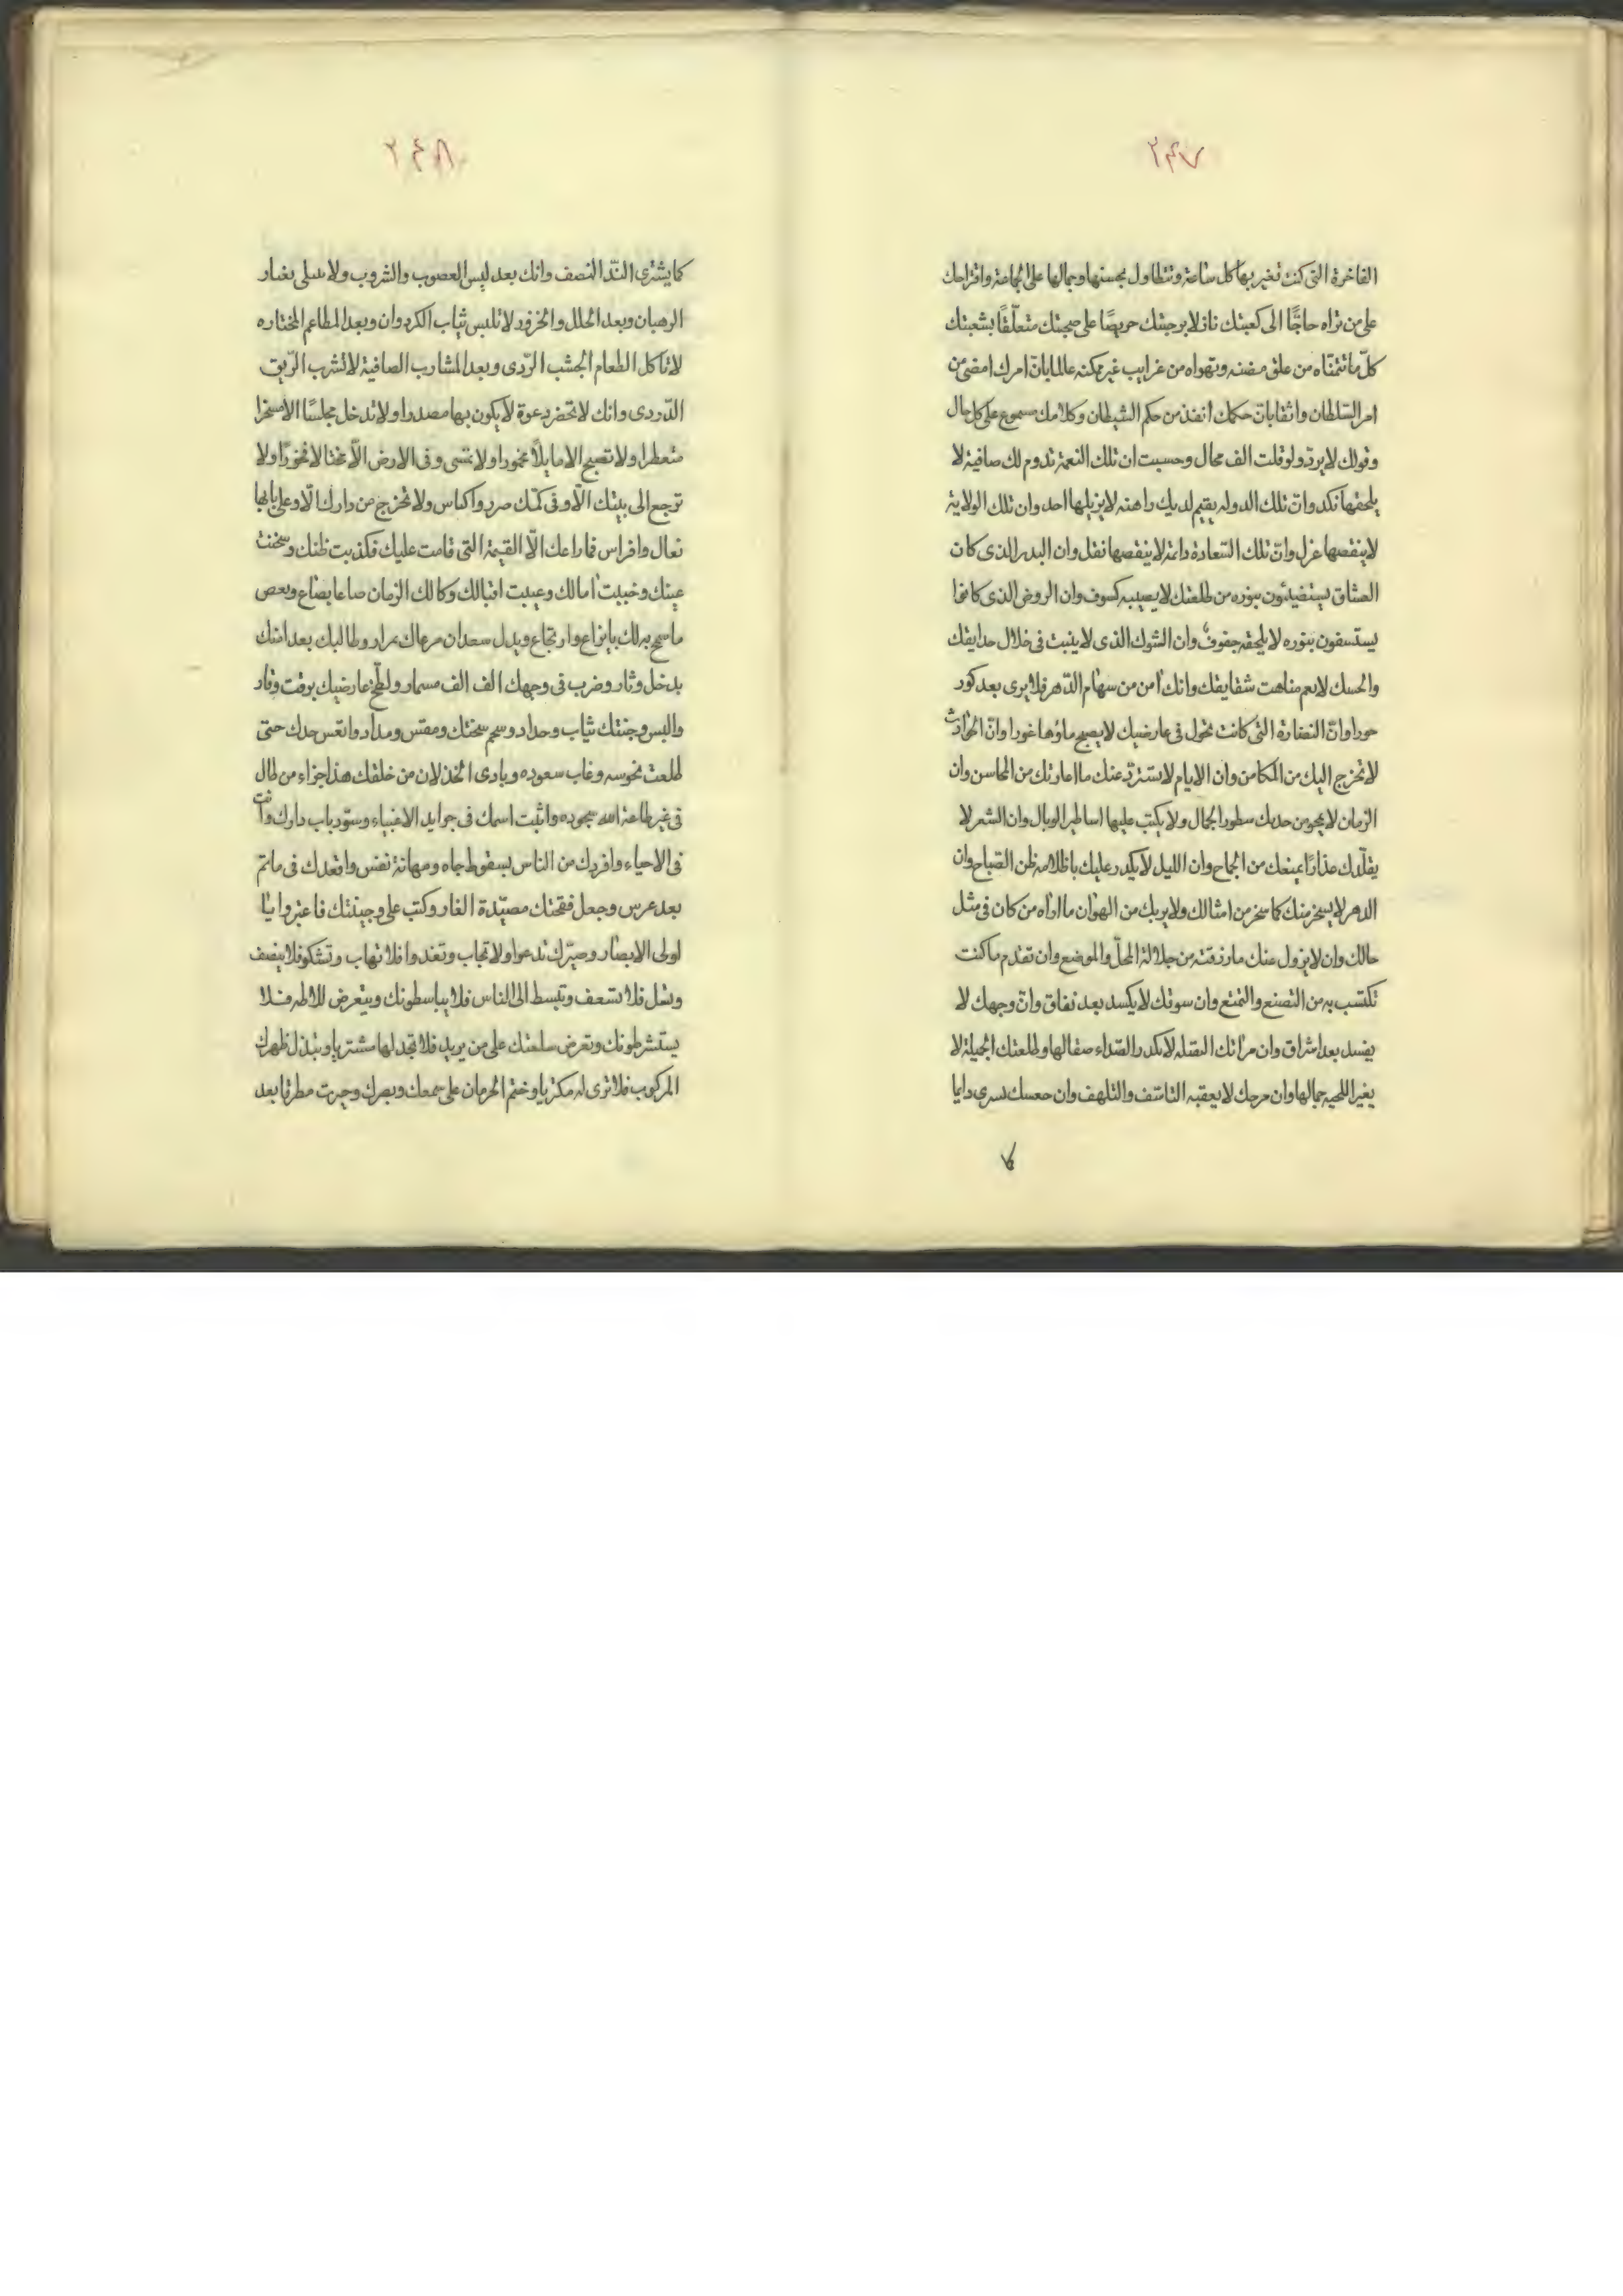 ٢٤٧
الفاخرة التى كنت تغير بها كل ساعة وتتطاول بحسنها وجمالها على الجماعة واقتراحك
على من تراه حاجًّا الى كعبتك نازلا برحبتك حريصًا على صحبتك متعلّقًا بشعبتك
كلّ ما تتمنّاه من علق مضنه وتهواه من غرايب غير ممكنه عالما بانّ امرك امضى من
امر السّلطان واثقا بانّ حكمك انفذ من حكم الشيطان وكلامك مسموع على كل حال
وقولك لا يردّ ولو قلت الف محال وحسبت ان تلك النعمة تدوم لك صافية لا
يلحقها نكد وانّ تلك الدوله يقيم لديك راهنه لا يزيلها احد وان تلك الولاية
لا ينقصها عزل وانّ تلك السّعادة دائمة لا ينقصها نقل وان البدر الذى كان
العشاق يستضيئون بنوره من طلعتك لا يصيبه كسوف وان الروض الذى كانوا
يستسفون بنوره لا يلحقه جفوف وان الشوك الذى لا ينبت فى خلال حدايقك
والحسك لا يعم منابت شقايقك وانك امن من سهام الدّهر فلا يرى بعد كور
حورا وانّ النضارة التى كانت تجول فى عارضيك لا يصبح ماؤها غورا وانّ الحوادث
لا تخرج اليك من المكامن وان الايام لا تستردّ عنك ما اعارتك من المحاسن وان
الزمان لا يمحو من خديك سطور الجمال ولا يكتب عليها اساطير الوبال وان الشعر لا
يقلّدك عذارًا يمنعك من الجماح وان الليل لا يكدر عليك باظلامه ظن الصّباح وان
الدهر لا يسخر منك كما سخر من امثالك ولا يريك من الهوان ما اراه من كان فى مثل
حالك وان لا يزول عنك ما رزقته من جلالة المحلّ والموضع وان تقدم ما كنت
تكتسب به من التصنع والتمتع وان سوقك لا يكسد بعد نفاق وانّ وجهك لا
يفسد بعد اشراق وان مرآتك الصقله لا يكدر الصّداء صقالها وطلعتك الجميلة لا
يغير اللحيه جمالها وان مرحك لا يعقبه التاسّف والتلهف وان
كما
٢٤٨
كما يشترى النّد النصف وانك بعد لبس العصوب والشروب ولا بغيار
الرهبان وبعد الحلل والخزور لا تلبس ثياب الكردوان وبعد المطاعم المختاره
لا تاكل الطعام الجشب الرّدى وبعد المشارب الصافية لا تشرب الرّيق
الدّردى وانك لا تحضر دعوة لا يكون بها مصدرا ولا تدخل مجلسًا الا مبخرا
متعطرا ولا تصبح الا مايلًا مخمورا ولا تمشى وفى الارض الّا مختالا فخورًا ولا
ترجع الى بيتك الّا وفى كمّك صرر واكياس ولا تخرج من دارك الّا وعلى بابها
نعال وافراس فما راعك الّا القيمة التى قامت عليك فكذبت ظنك وسخنت
عينك وخيبت امالك وعيبت اقبالك وكالك الزمان صاعا بصاع وبعص
ما سمح به لك بانزاع وارتجاع وبدل سعدان مرعاك بمرار وطالبك بعد امنك
بدخل وثار وضرب فى وجهك الف الف مسمار ولطّخ عارضيك بزفت وقار
والبس وجنتك ثياب وحداد وسحم سحنتك ومقتس ومداد واتعس جدك حتى
طلعت نحوسه وغاب سعوده ونادى الخذلان من خلفك هذا جزاء من طال
فى غير طاعة الله سجوده واثبت اسمك فى جرايد الاغنياء وسوّر باب دارك وانت
فى الاحياء وافردك من الناس بسقوط جاه ومهانة نفس واقعدك فى ماتم
بعد عرس وجعل فقحتك مصيّدة الفار وكتب على وجنتك فاعتبروا يا
اولى الابصار وصيّرك تدعوا ولا تجاب وتغدوا فلا تهاب وتشكو فلا ينصف
وسل فلا تسعف وتبسط الى الناس فلا يباسطونك ويتعرض للاطه فلا
يستشرطونك وتعرض سلعتك على من يريد فلا تجد لها مشتريا وتبذل ظهرك
المركوب فلا ترى له مكتريا وختم الحرمان على سمعك وبصرك وصرت مطرقا بعد